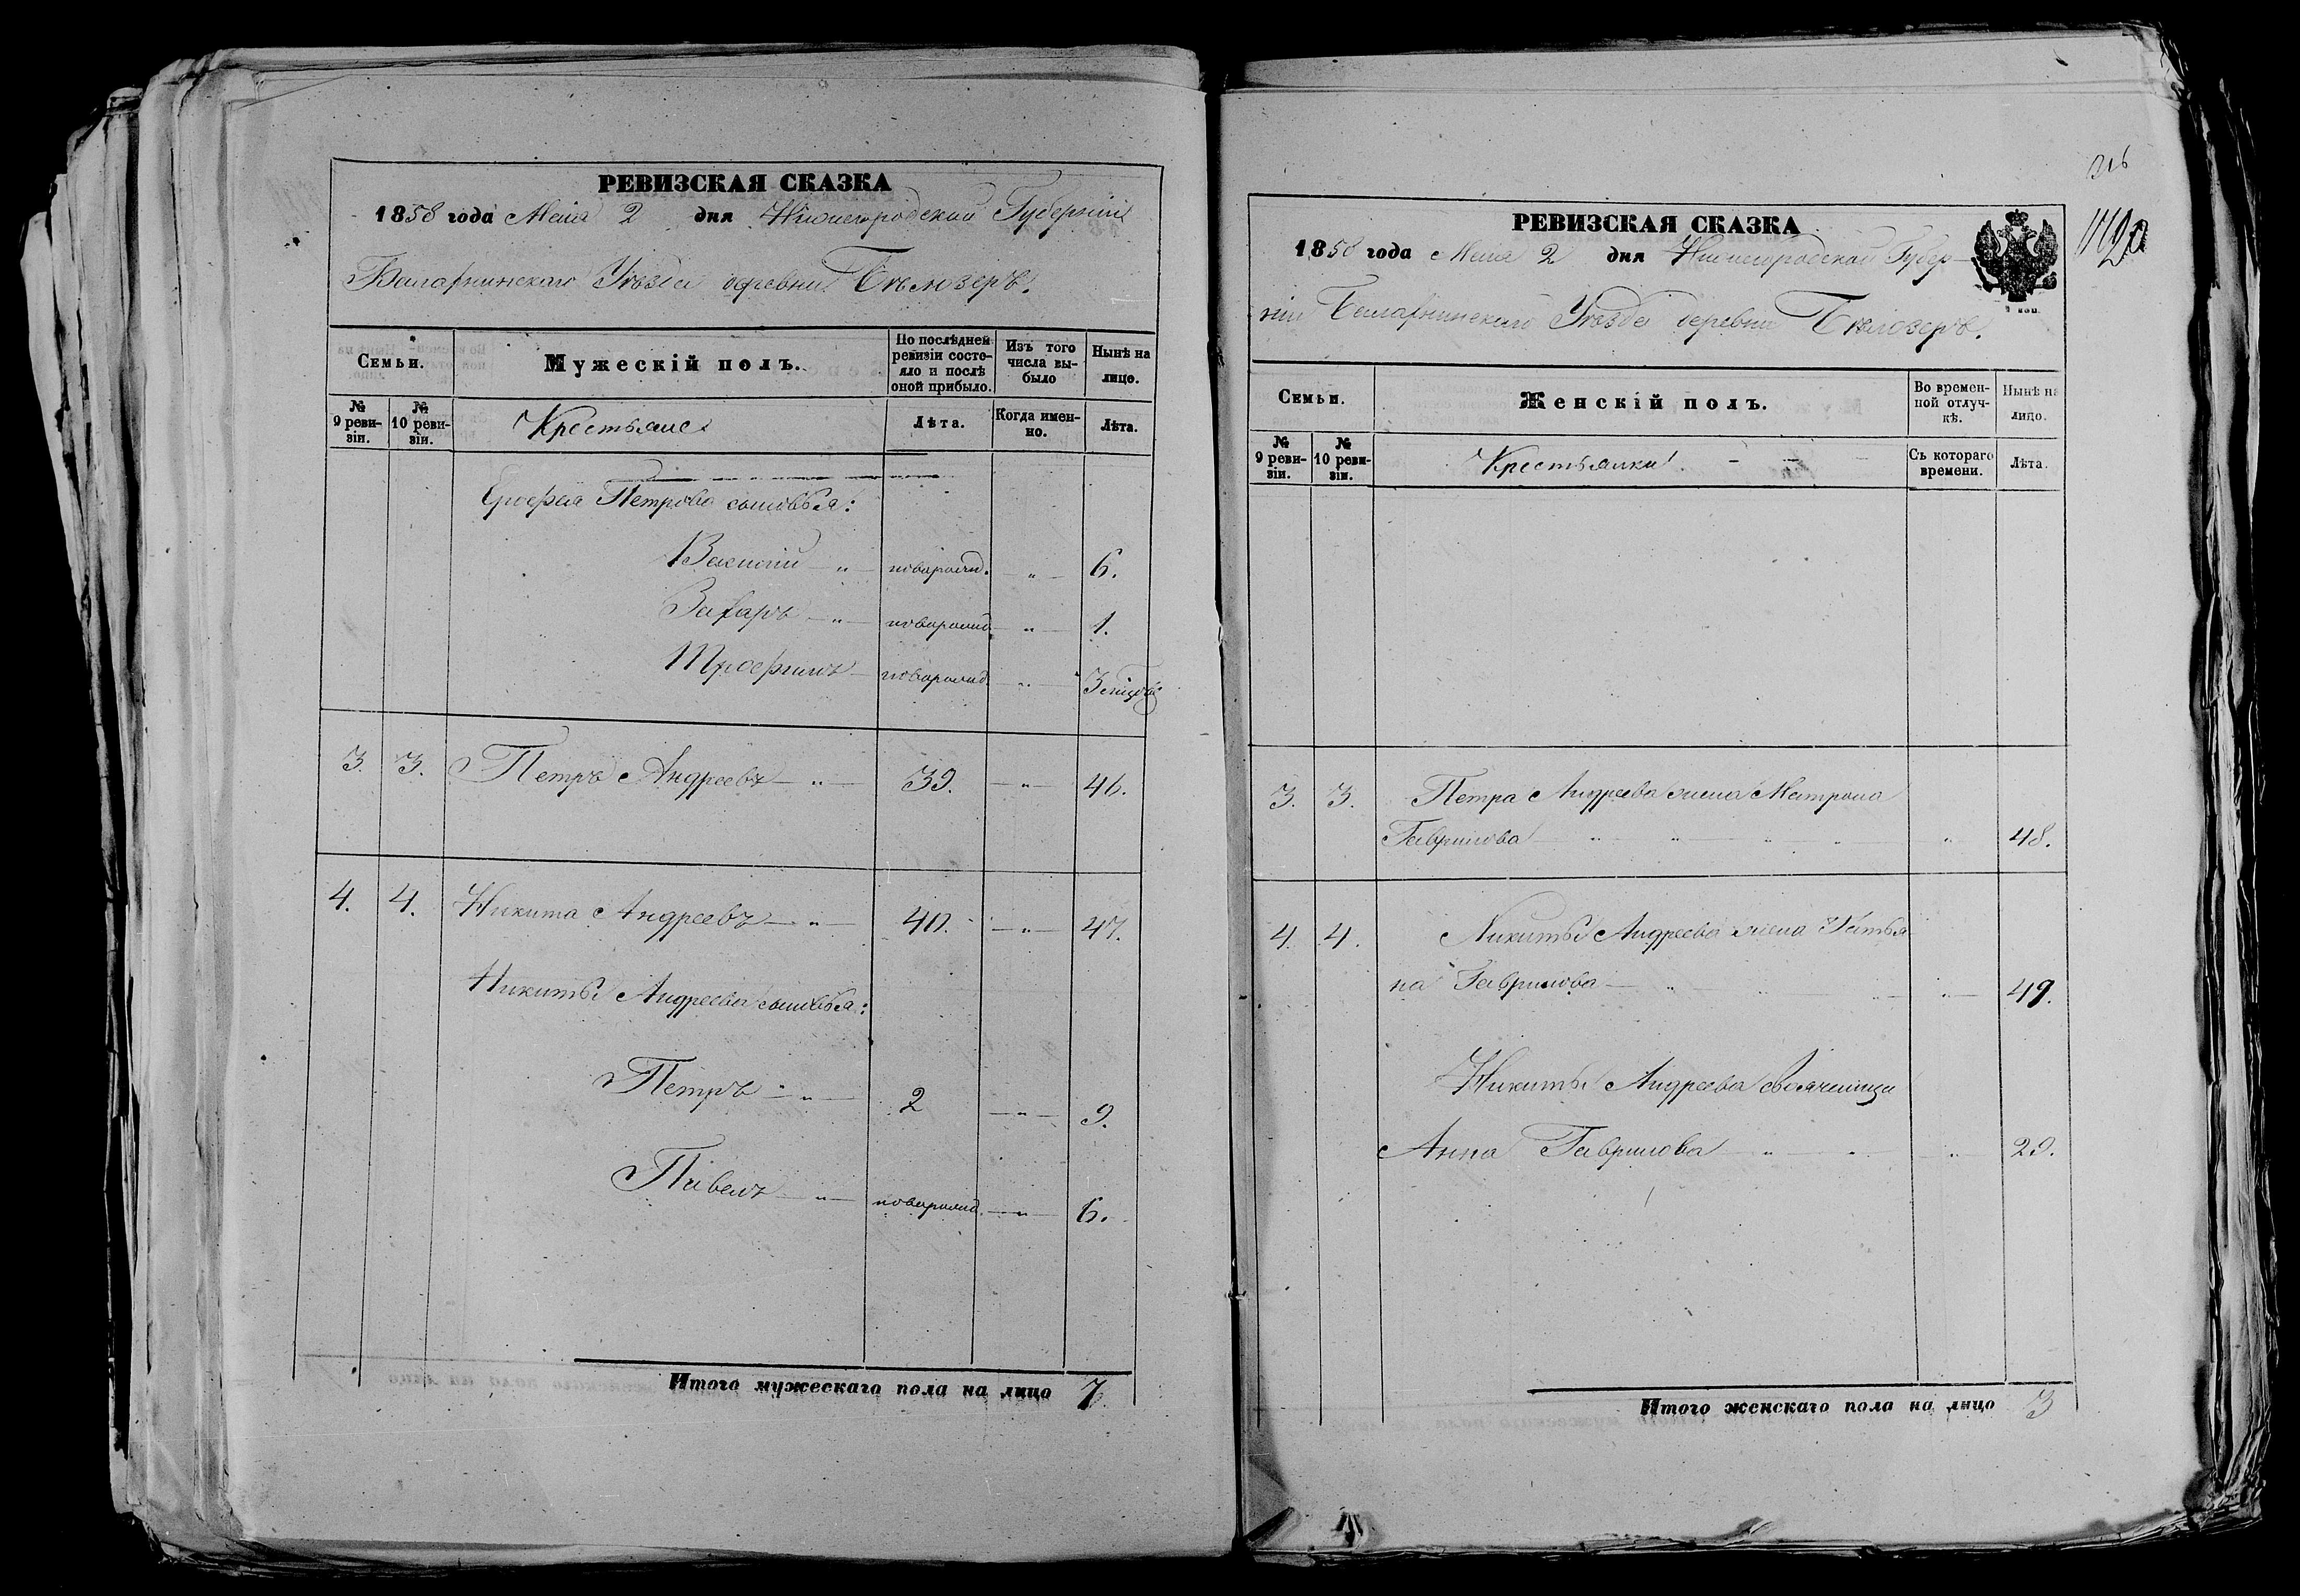 РЕВИЗСКАЯ СКАЗКА
1858 года Маія 2 дня Нижегородской Губерніи
Балахнинскаго Уѣзда деревни Бѣлозеръ.
Семьи.
Мужескій полъ.
По послѣдней ревизіи состояло и послѣ оной прибыло.
Изъ того числа выбыло
Нынѣ на лице.
№ 9 ревизіи.
№ 10 ревизіи.
Крестьяне
Лѣта.
Когда именно.
Лѣта.
Ерофея Петрова сыновья:
Василій — „ — новорожд. — „ — 6.
Захаръ — „ — новорожд. — „ — 1.
Трофимъ — новорожд. — „ — 3
3. 3. Петръ Андреевъ — „ — 39. — „ — 46.
4. 4. Никита Андреевъ — „ — 40. — „ — 47.
Никиты Андреева сыновья:
Петръ — „ — 2 — „ — 9.
Павелъ — „ — новорожд. — „ — 6.
Итого мужескаго пола на лицо 7.
316
РЕВИЗСКАЯ СКАЗКА
1858 года Маія 2 дня Нижегородской Губер-
ніи Балахнинскаго Уѣзда деревни Бѣлозеръ.
Семьи.
Женскій полъ.
Во временной отлучкѣ.
Нынѣ на лицо.
№ 9 ревизіи.
№ 10 ревизіи.
Крестьянки
Съ котораго времени.
Лѣта.
3. 3. Петра Андреева жена Матрона
Гаврилова „ 48.
4. 4. Никиты Андреева жена Татья
на Гаврилова — „ — 49.
Никиты Андреева свояченица
Анна Гаврилова „ 29.
Итого женскаго пола на лицо 3